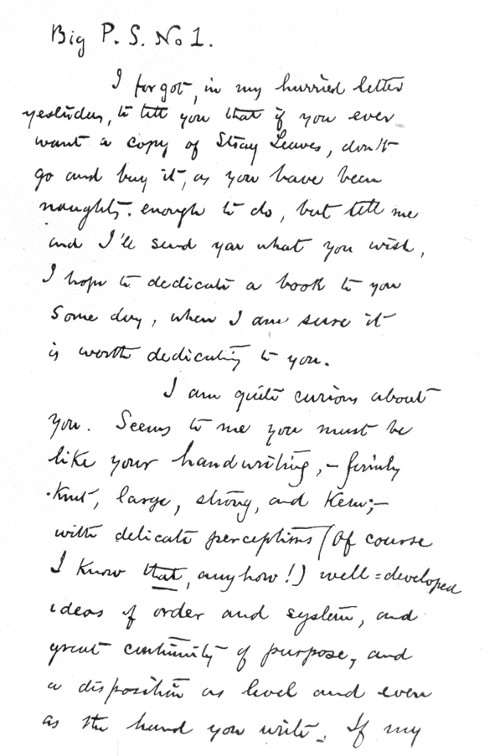 Big P. S. No 1.
I forgot, in my hurried letter
yesterday, to tell you that if you ever
want a copy of Stray Leaves, don't
go and buy it, as you have been
naughty enough to do, but tell me
and I'll send you what you wish.
I hope to dedicate a book to you
some day, when I am sure it
is worth dedicating to you.
I am quite curious about
you. Seems to me you must be
like your handwriting, – firmly
knit, large, strong, and keen; –
with delicate perceptions (Of course
I know that, anyhow!) well=developed
ideas of order and system, and
great continuity of purpose, and
a disposition as level and even
as the hand you write. If my